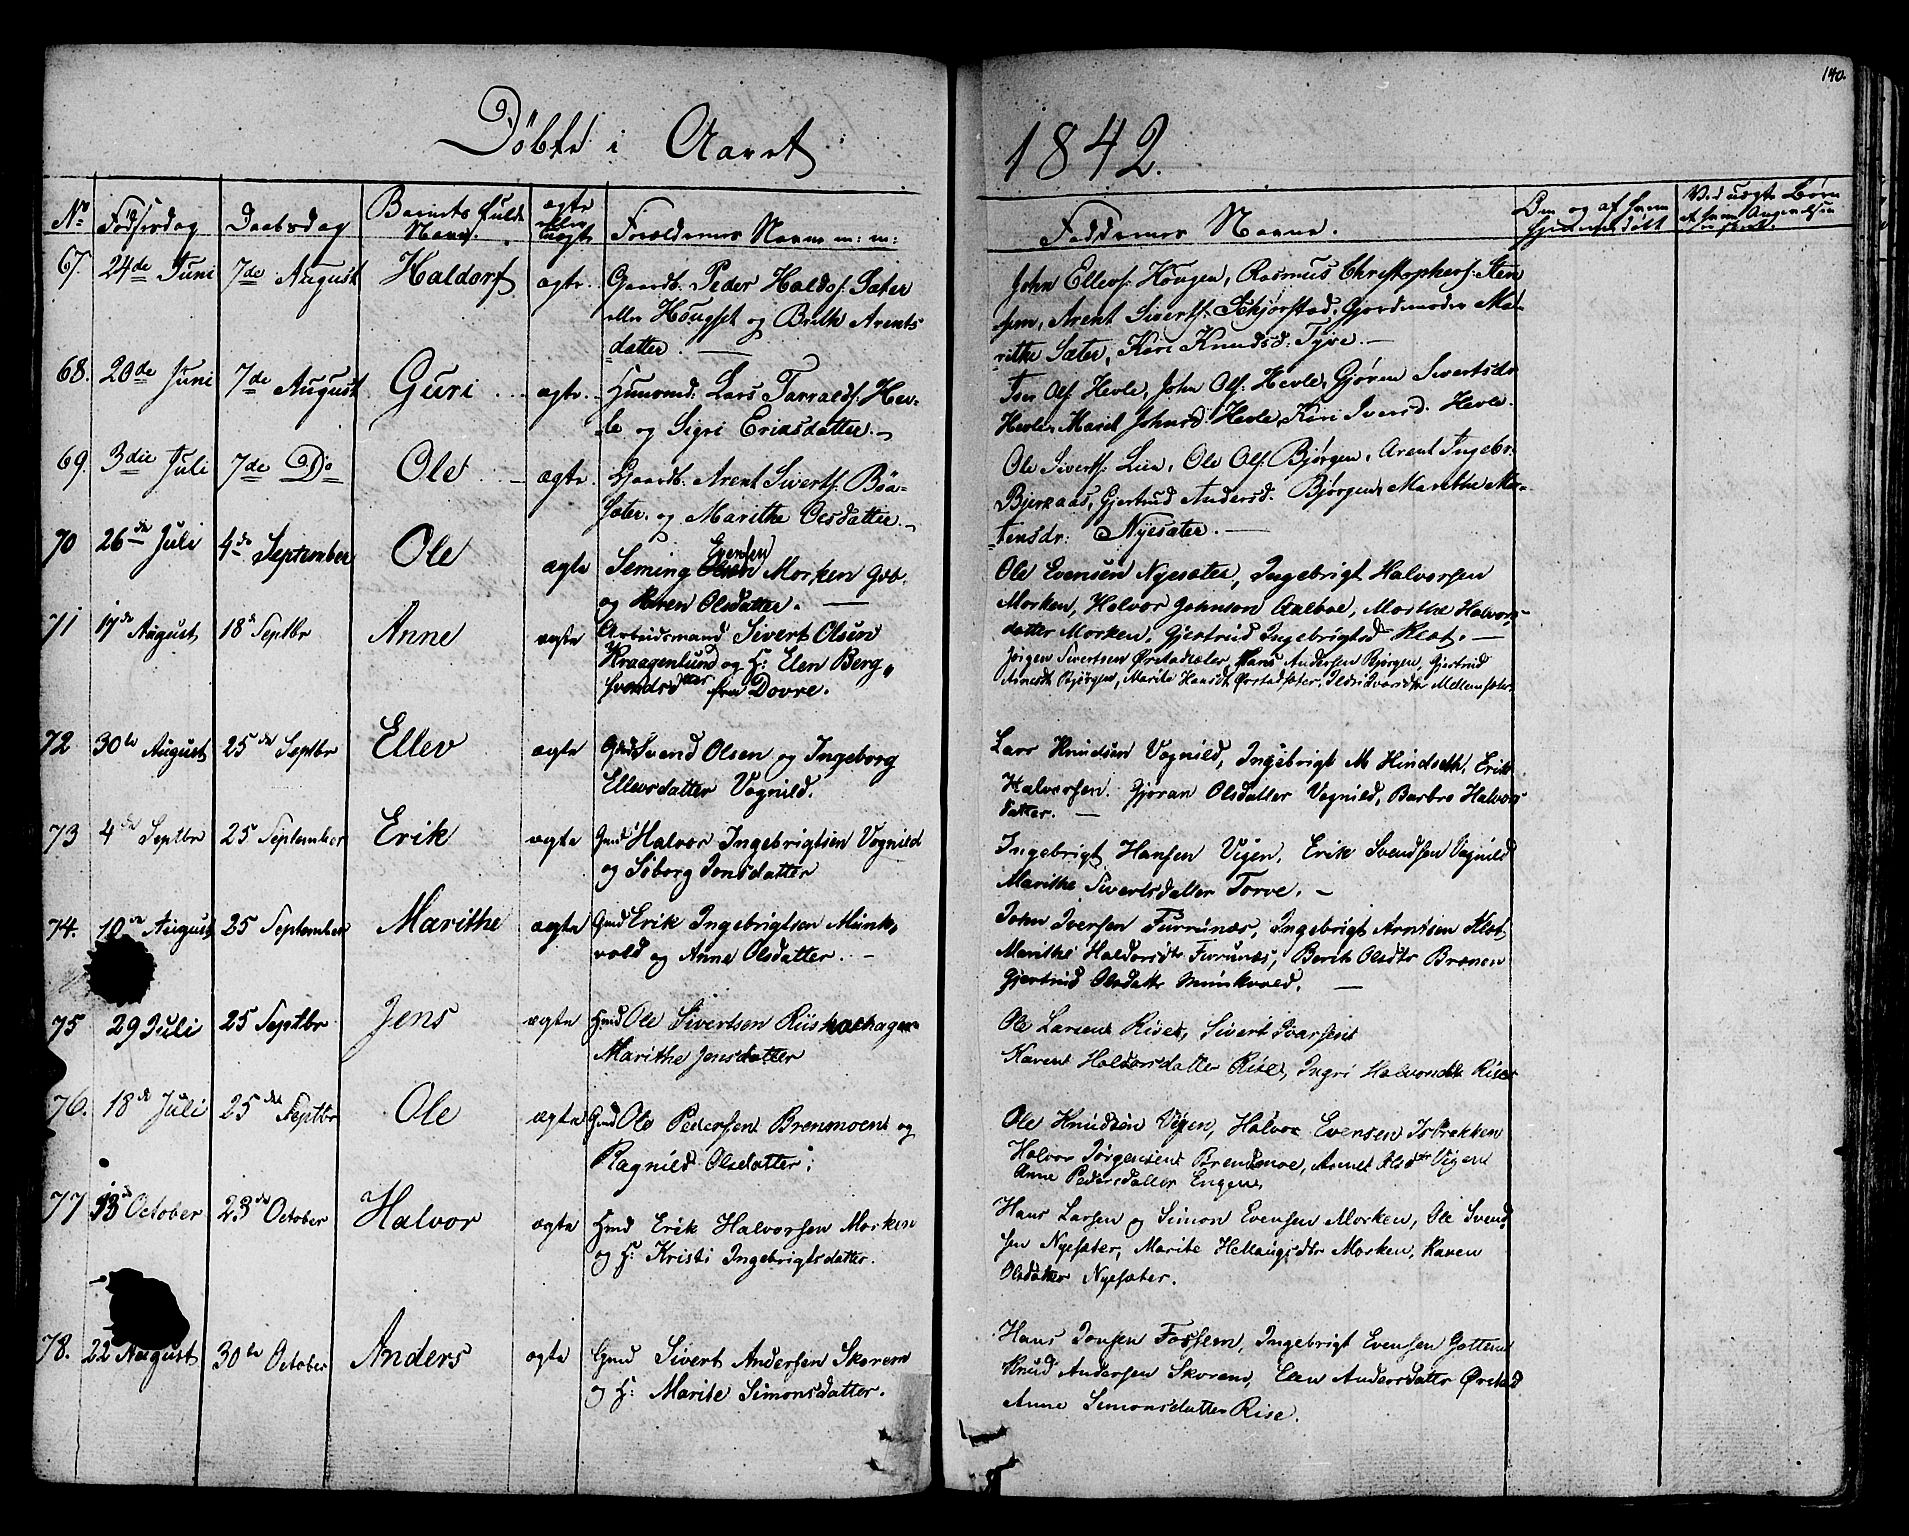 Döbte i Aaret
1842.
140.
No Fødselsdag Daabsdag Barnets fulde Navn. ægte eller uægte Forældrenes Navne m: m:
Faddernes Navne.
67. 24de Juni 7de August Haldorf ægte. Gaardb. Peder Haldof: Sæter
eller Hougset og Brith Arents
datter.
John Ellevs: Hougen, Rasmus Christophers: Sten
Arent Siverts: Schjørstad, Gjordemoder Ma-
rithe Sæter, Kari Knudsd: Tyve.
68. 20de Juni 7de August Guri ægte. Huusmd: Lars Tarralds: Hev-
le og Sigri Ericsdatter.
Iver Ols: Hevle, John Ols: Hevle, Gjøren Sivertsdr
Hevle, Marit Johnsd: Hevle, Kari Iversd: Hevle.
69. 3die Juli 7de Do Ole ægte. Gaardb. Arent Siverts: Böa-
sæter og Marithe Olsdatter.
Ole Siverts: Lien, Ole Ols: Bjørgen, Arent Ingebr:
Bjerkaas, Gjertrud Andersd: Bjørgen, Marethe Mor-
tensdr: Nyesæter.
70 26de Juli 4de September Ole ægte Seming Evensen Morken Gdb.
og Karen Olsdatter.
Ole Evensen Nyesæter, Ingebrigt Halvorsen
Morken, Halvor Johnsen Aalboe, Marthe Halvors-
datter Morken, Gjertrud Ingebrigtsd Kleat.
71 17de August 18de Septbr Anne ægte Arbeidsmand Sivert Olsen
Kraagenlund og H: Elen Berg-
svendsdatter fra Dovre.
Jörgen Sivertsen Ørstadsæter, Hans Andersen Bjørgen, Gjertrud
Arnesdt Bjørgen, Marite Hansdt Ørstadsæter, Mellemsæter.
72 30te August 25de Septbr Ellev ægte Gmd Svend Olsen og Ingeborg
Ellevsdatter Vognild.
Lars Knudsen Vognild, Ingebrigt M Hindseth, Erik
Halvorsen. Gjöran Olsdatter Vognild, Barbro Halvors
datter.
73 4de Septbr 25 September Erik ægte Gmd Halvor Ingebrigtsen Vognild
og Siborg Jonsdatter
Ingebrigt Hansen Vigen, Erik Svendsen Vognild
Marithe Sivertsdatter Torve.
74. 10de August 25 September Marithe ægte Gmd Erik Ingebrigtsen Munk-
vold og Anne Olsdatter.
John Iversen Furrunæs, Ingebrigt Arntsen Kleat,
Marithe Haldorsdtr Furrunæs, Berit Olsdtr Brænen
Gjertrud Olsdattr Munkvold.
75 29 Juli 25 Septbr Jens ægte Hmd Ole Sivertsen Riishathagen
Marithe Jensdatter
Ole Larsen Rise, Sivert Ivarsen
Karen Haldorsdatter Rise, Ingri Halvorsdt Rise
76. 18de Juli 25de Septbr Ole ægte Gmd Ole Pedersen Brenmoen og
Ragnild Olsdatter.
Ole Knudsen Vigen, Halvor Evensen Isbrekken
Halvor Jörgensen Brendmoe, Vigen
Anne Pedersdatter Engen.
77 13de October 23de October Halvor ægte Hmd Erik Halvorsen Morken
og H: Kristi Ingebrigtsdatter.
Hans Larsen og Simon Evensen Morken, Ole Svend
sen Nyesæter, Marite Hellaugsdtr Morken, Karen
Olsdatter Nyesæter.
78. 22 August 30te October Anders ægte Gmd Sivert Andersen Skorem
og H: Marite Simonsdatter.
Hans Jonsen Fossem, Ingebrigt Evensen Gotten
Knud Andersen Skorem, Elen Andersdatter Ørstad
Anne Simonsdatter Rise.